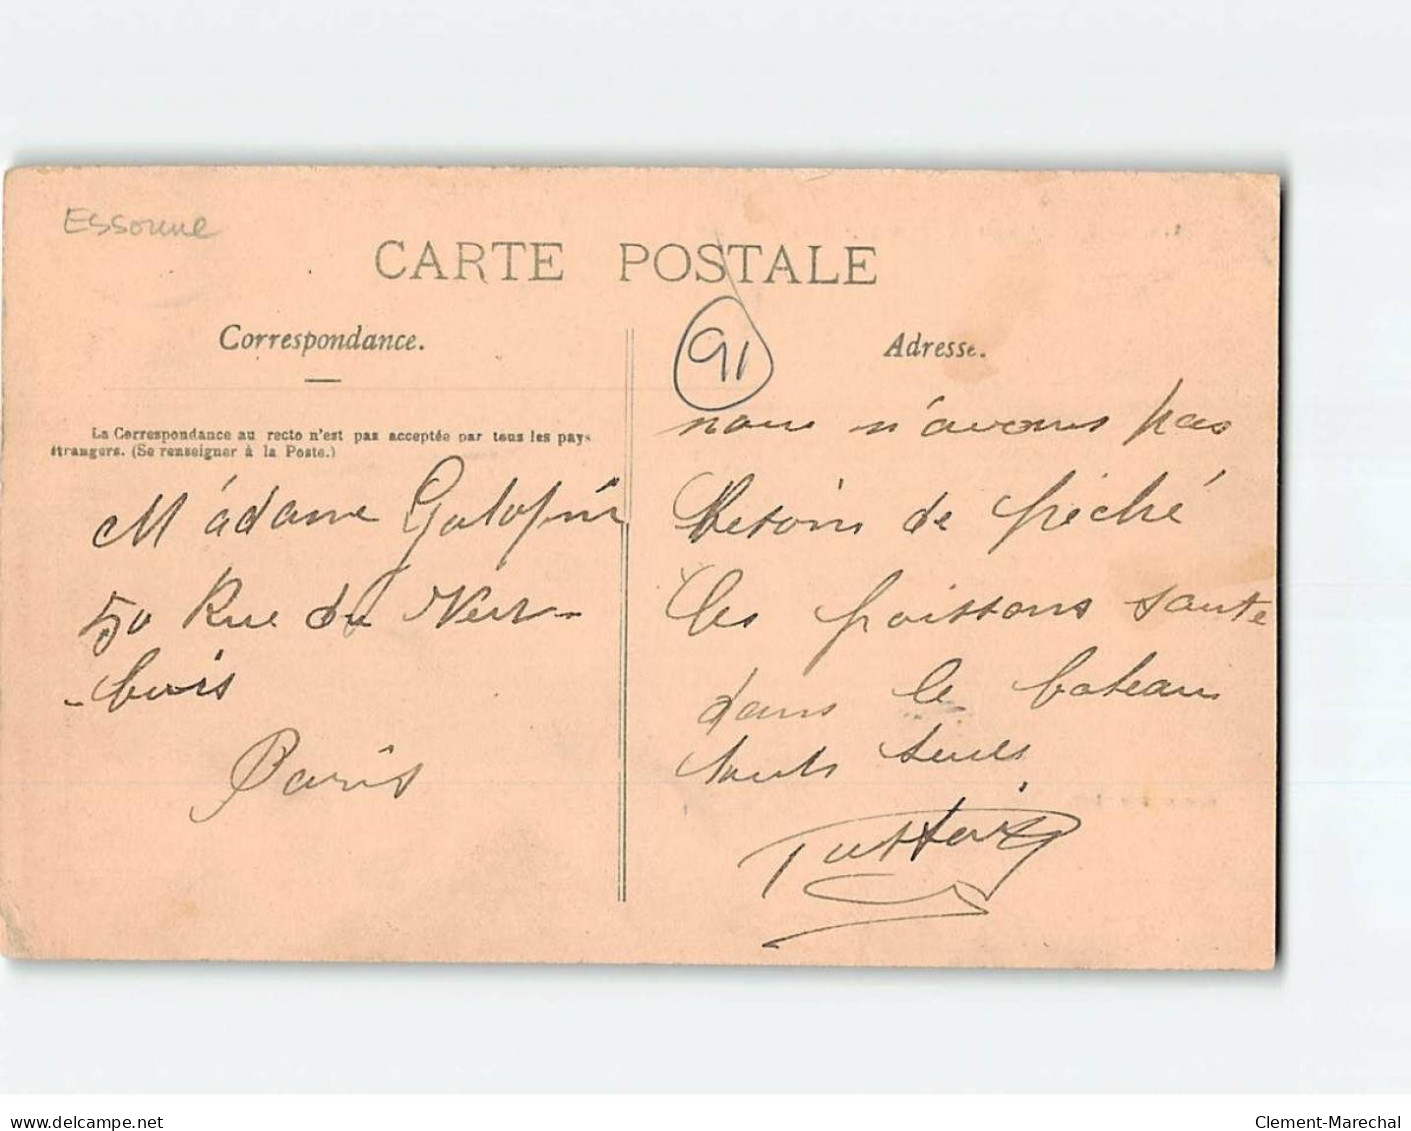 Essonne
CARTE POSTALE
Correspondance.
La Correspondance au recto n'est pas acceptée par tous les pays
étrangers. (Se renseigner à la Poste.)
Madame Galopin
50 Rue du Vert-
-bois
Paris
91
Adresse.
nous n'avons pas
besoin de péché
les poissons saute
dans le bateau
touts seuls
www.delcampe.net
Clement-Marechal